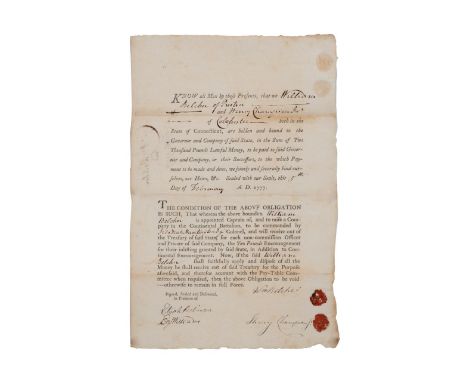 KNOW all Men by these Presents, that we William
Belcher of Preston
and Henry Champion Jr
of Colchester both in the
State of Connecticut, are holden and bound to the
Governor and Company of said State, in the Sum of Two
Thousand Pounds Lawful Money, to be paid to said Gover-
nor and Company, or their Successors, to the which Pay-
ment to be made and done, we jointly and severally bind our-
selves, our Heirs, &c. Sealed with our Seals, this 5th
Day of February A. D. 1777.
THE CONDITION OF THE ABOVE OBLIGATION
IS SUCH, That whereas the above bounden William
Belcher is appointed Captain of, and to raise a Com-
pany in the Continental Battalion, to be commanded by
Colonel, and will receive out of
the Treasury of said State for each non-commission Officer
and Private of said Company, the Ten Pounds Encouragement
for their inlisting granted by said State, in Addition to Con-
tinental Encouragement. Now, if the said William
Belcher shall faithfully apply and dispose of all the
Money he shall receive out of said Treasury for the Purpose
aforesaid, and thereof account with the Pay-Table Com-
mittee when required, then the above Obligation to be void
—otherwise to remain in full Force.
Signed, Sealed and Delivered,
in Presence of
Wm Belcher
Elijah Robinson
Henry Champion Jr